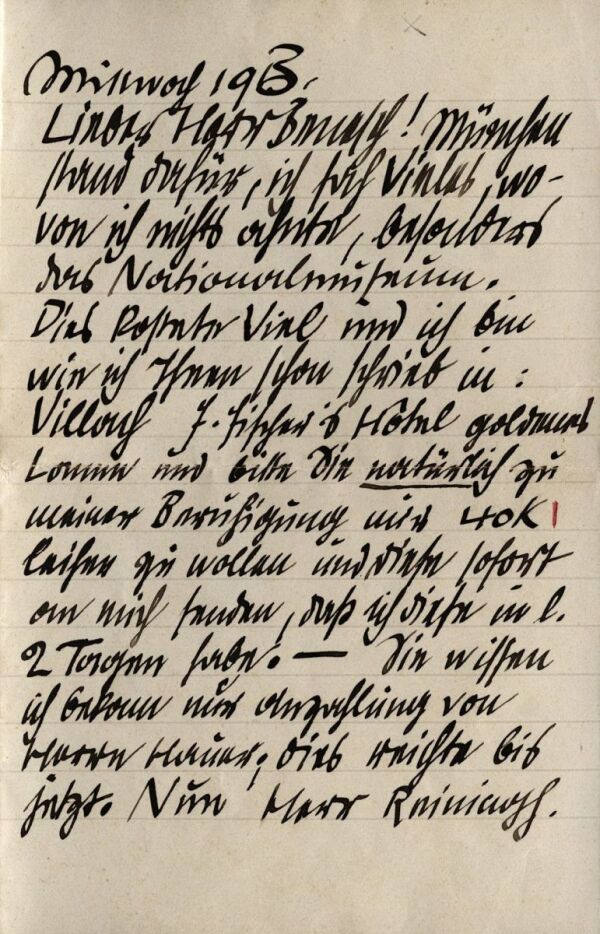 Mittwoch 1913.
Lieber Herr Benesch! München
stand dafür, ich sah Vieles, wo-
von ich nichts ahnte, besonders
das Nationalmuseum.
Dies kostete Viel und ich bin
wie ich Ihnen schon schrieb in:
Villach J. Fischer's Hôtel goldenes
Lamm und bitte Sie natürlich zu
meiner Beruhigung mir 40K
leihen zu wollen und diese sofort
an mich senden, daß ich diese in l.
2 Tagen habe. — Sie wissen
ich bekam nur Anzahlung von
Herrn Hauer; dies reichte bis
jetzt. Nun Herr Reininghs.